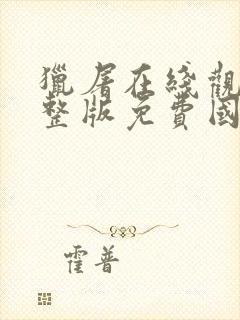 獵屠在綫觀
整版免費國
霍普